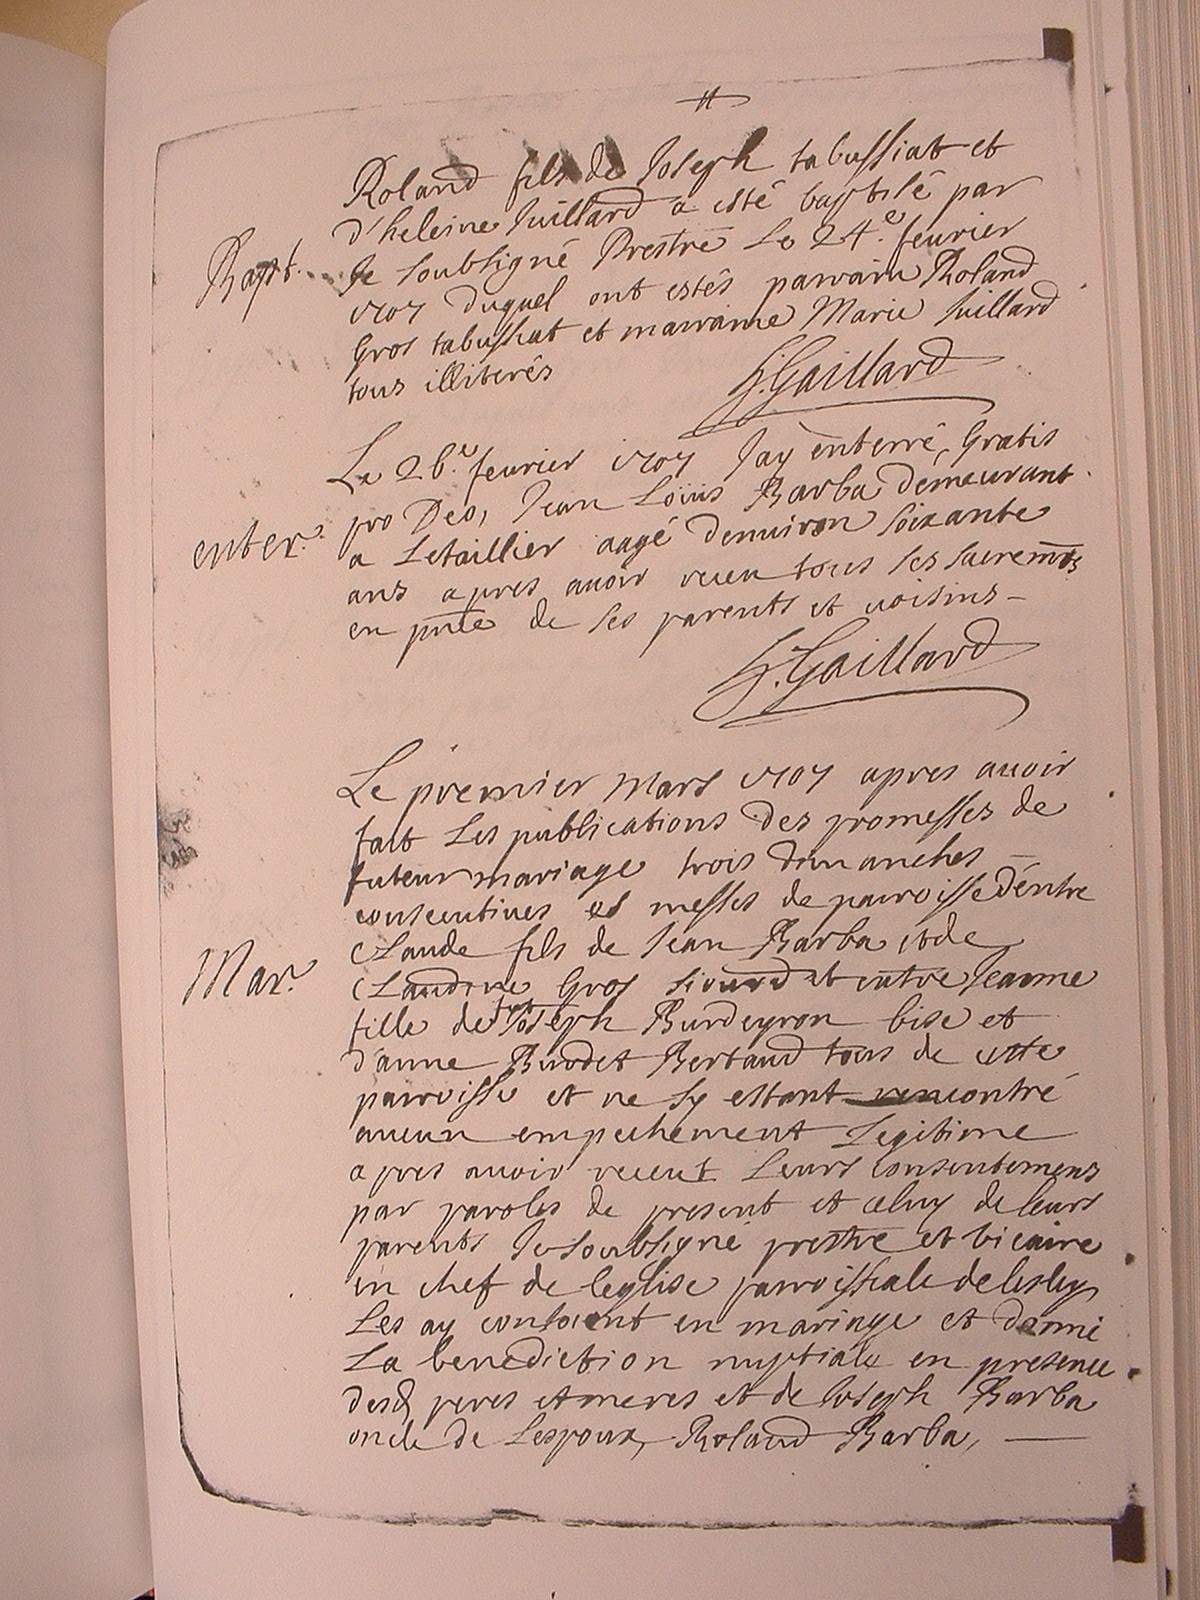 Roland fils de Joseph tabussiat et
d'heleine Juillard a esté baptisé par
Bapt. Je soubsigné Prestre Le 24.e feurier
1707 duquel ont estés parrain Roland
Gros tabussiat et marraine Marie Juillard
tous illiterés
Gaillard
Le 26.e feurier 1707 Jay enterré, Gratis
pro Deo, Jean Loüis Barba demeurant
enter. a Letaillier aagé denuiron soixante
ans apres auoir receu tous ses sacremts
en pnce de ses parents et uoisins
Gaillard
Le premier Mars 1707 apres auoir
fait Les publications des promesses de
futeur mariage trois dimanches
consecutiues es messes de parroisse d'entre
Claude fils de Jean Barba et de
Mar. Claudine Gros et entre Jeanne
fille de Joseph Burdeyron bise et
d'anne Burdet Bertaud tous de cette
parroisse et ne sy estant rencontré
aucun empechement Legitime
apres auoir receut Leurs consentemens
par paroles de present et celuy de leurs
parents Je soubsigné prestre et vicaire
en chef de leglise parroissiale de
Les ay conjoient en mariage et donné
La benediction nuptiale en presence
desd peres et meres et de Joseph Barba
oncle de Lespoux, Roland Barba,